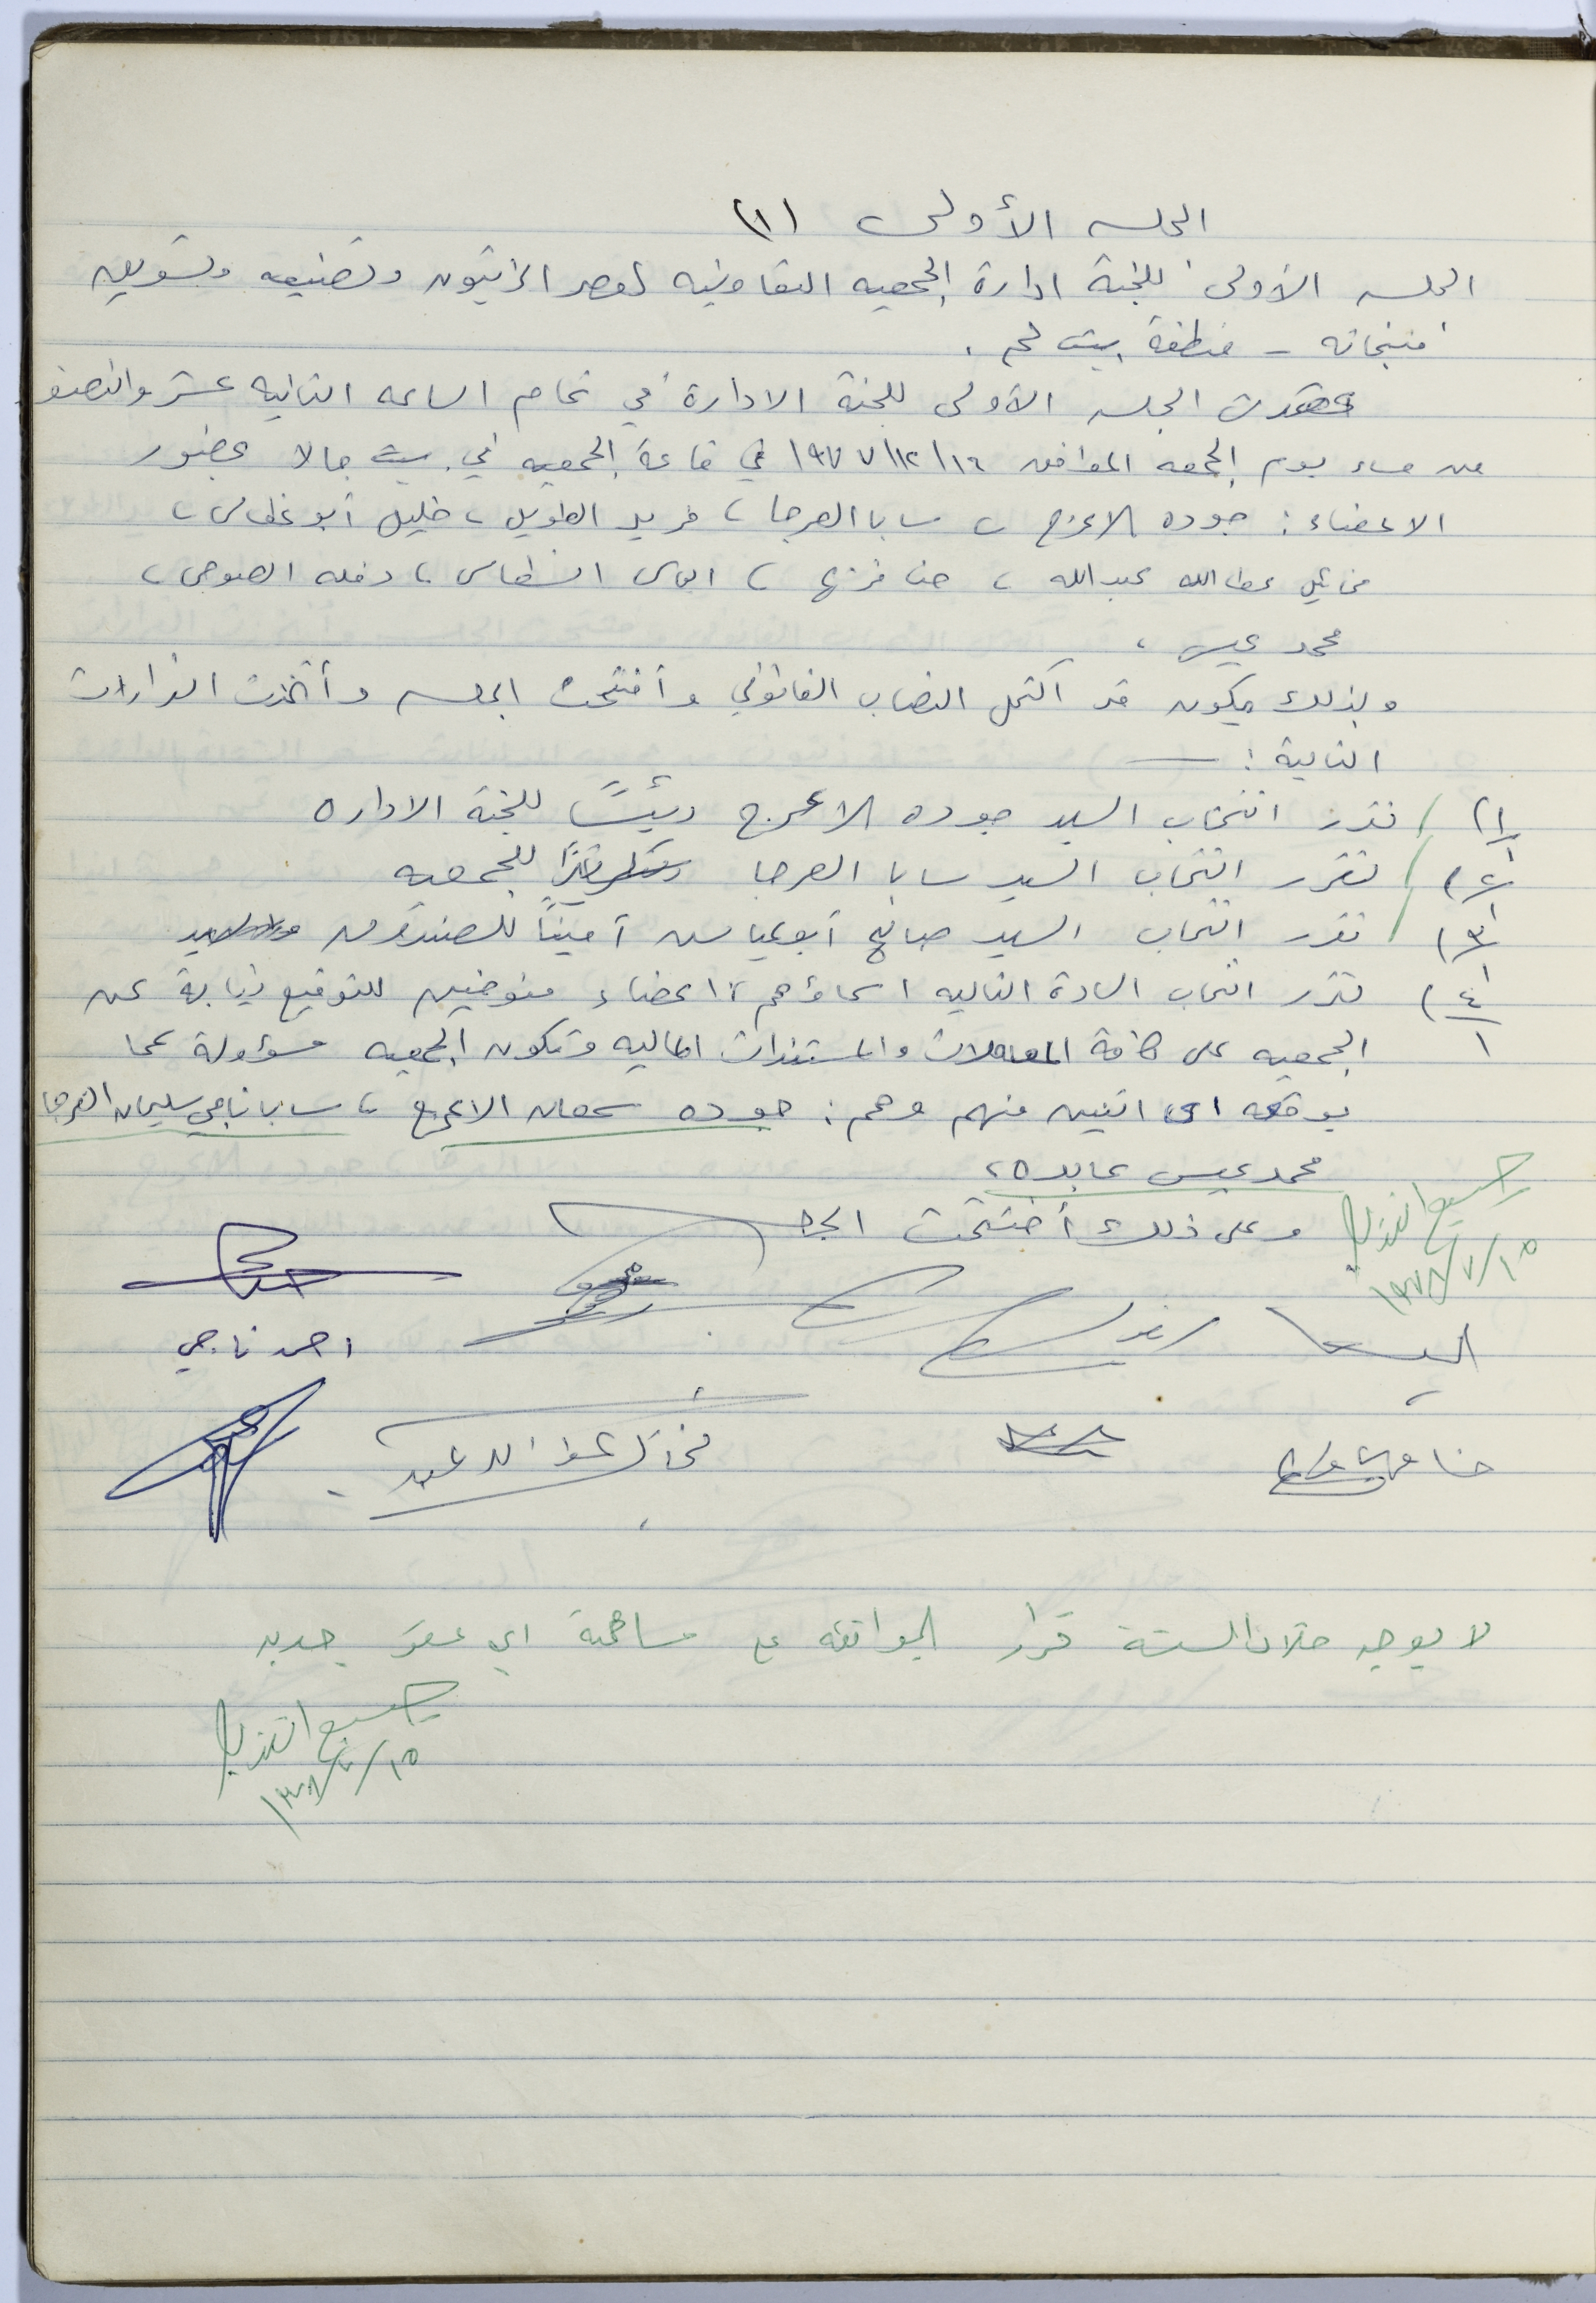 الجلسه الأولى (١)
الجلسه الأولى للجنة ادارة الجمعيه التعاونيه لعصر الزيتون وتصنيعه وتسويق
منتجاته - منطقة بيت لحم .
عقدت الجلسه الأولى للجنة الادارة في تمام الساعه الثانيه عشر والنصف
من مساء يوم الجمعه الموافق ١٦/١٢/١٩٧٧ في قاعة الجمعيه في بيت جالا بحضور
الاعضاء : جوده الاعرج ، سابا العرجا ، فريد الطويل ، خليل أبو غطاس ،
مخائيل عطالله عبدالله ، حنا قزنع ، الياس الشطاس ،
محمد عيسى ،
وبذلك يكون قد اكتمل النصاب القانوني وأفتتحت الجلسه وأتخذت القرارات
التالية : ـــ
١/١) تقرر انتخاب السيد جوده الاعرج رئيسًا للجنة الاداره
٢/١) تقرر انتخاب السيد سابا العرجا سكرتيرًا للجمعيه
٣/١) تقرر انتخاب السيد صالح أبو عياس أمينًا للصندوق
٤/١) تقرر انتخاب السادة التاليه اسماؤهم ، اعضاء مفوضين للتوقيع نيابة عن
الجمعيه على كافة المعاملات والمستندات الماليه وتكون الجمعيه مسؤولة عما
يوقعه اى اثنين منهم وهم : جوده سمعان الاعرج ، سابا ناجي سليمان العرجا
محمد عيسى عابده ،
وعلى ذلك أختتمت الجلسه
١٥/٧/١٩٧٨
احمد ناجي
حنا
مخائيل عطا الله عبد
لا يوجد خلال السنة قرار بالموافقه على مساهمة اي عضو جديد
١٥/٧/١٩٧٨